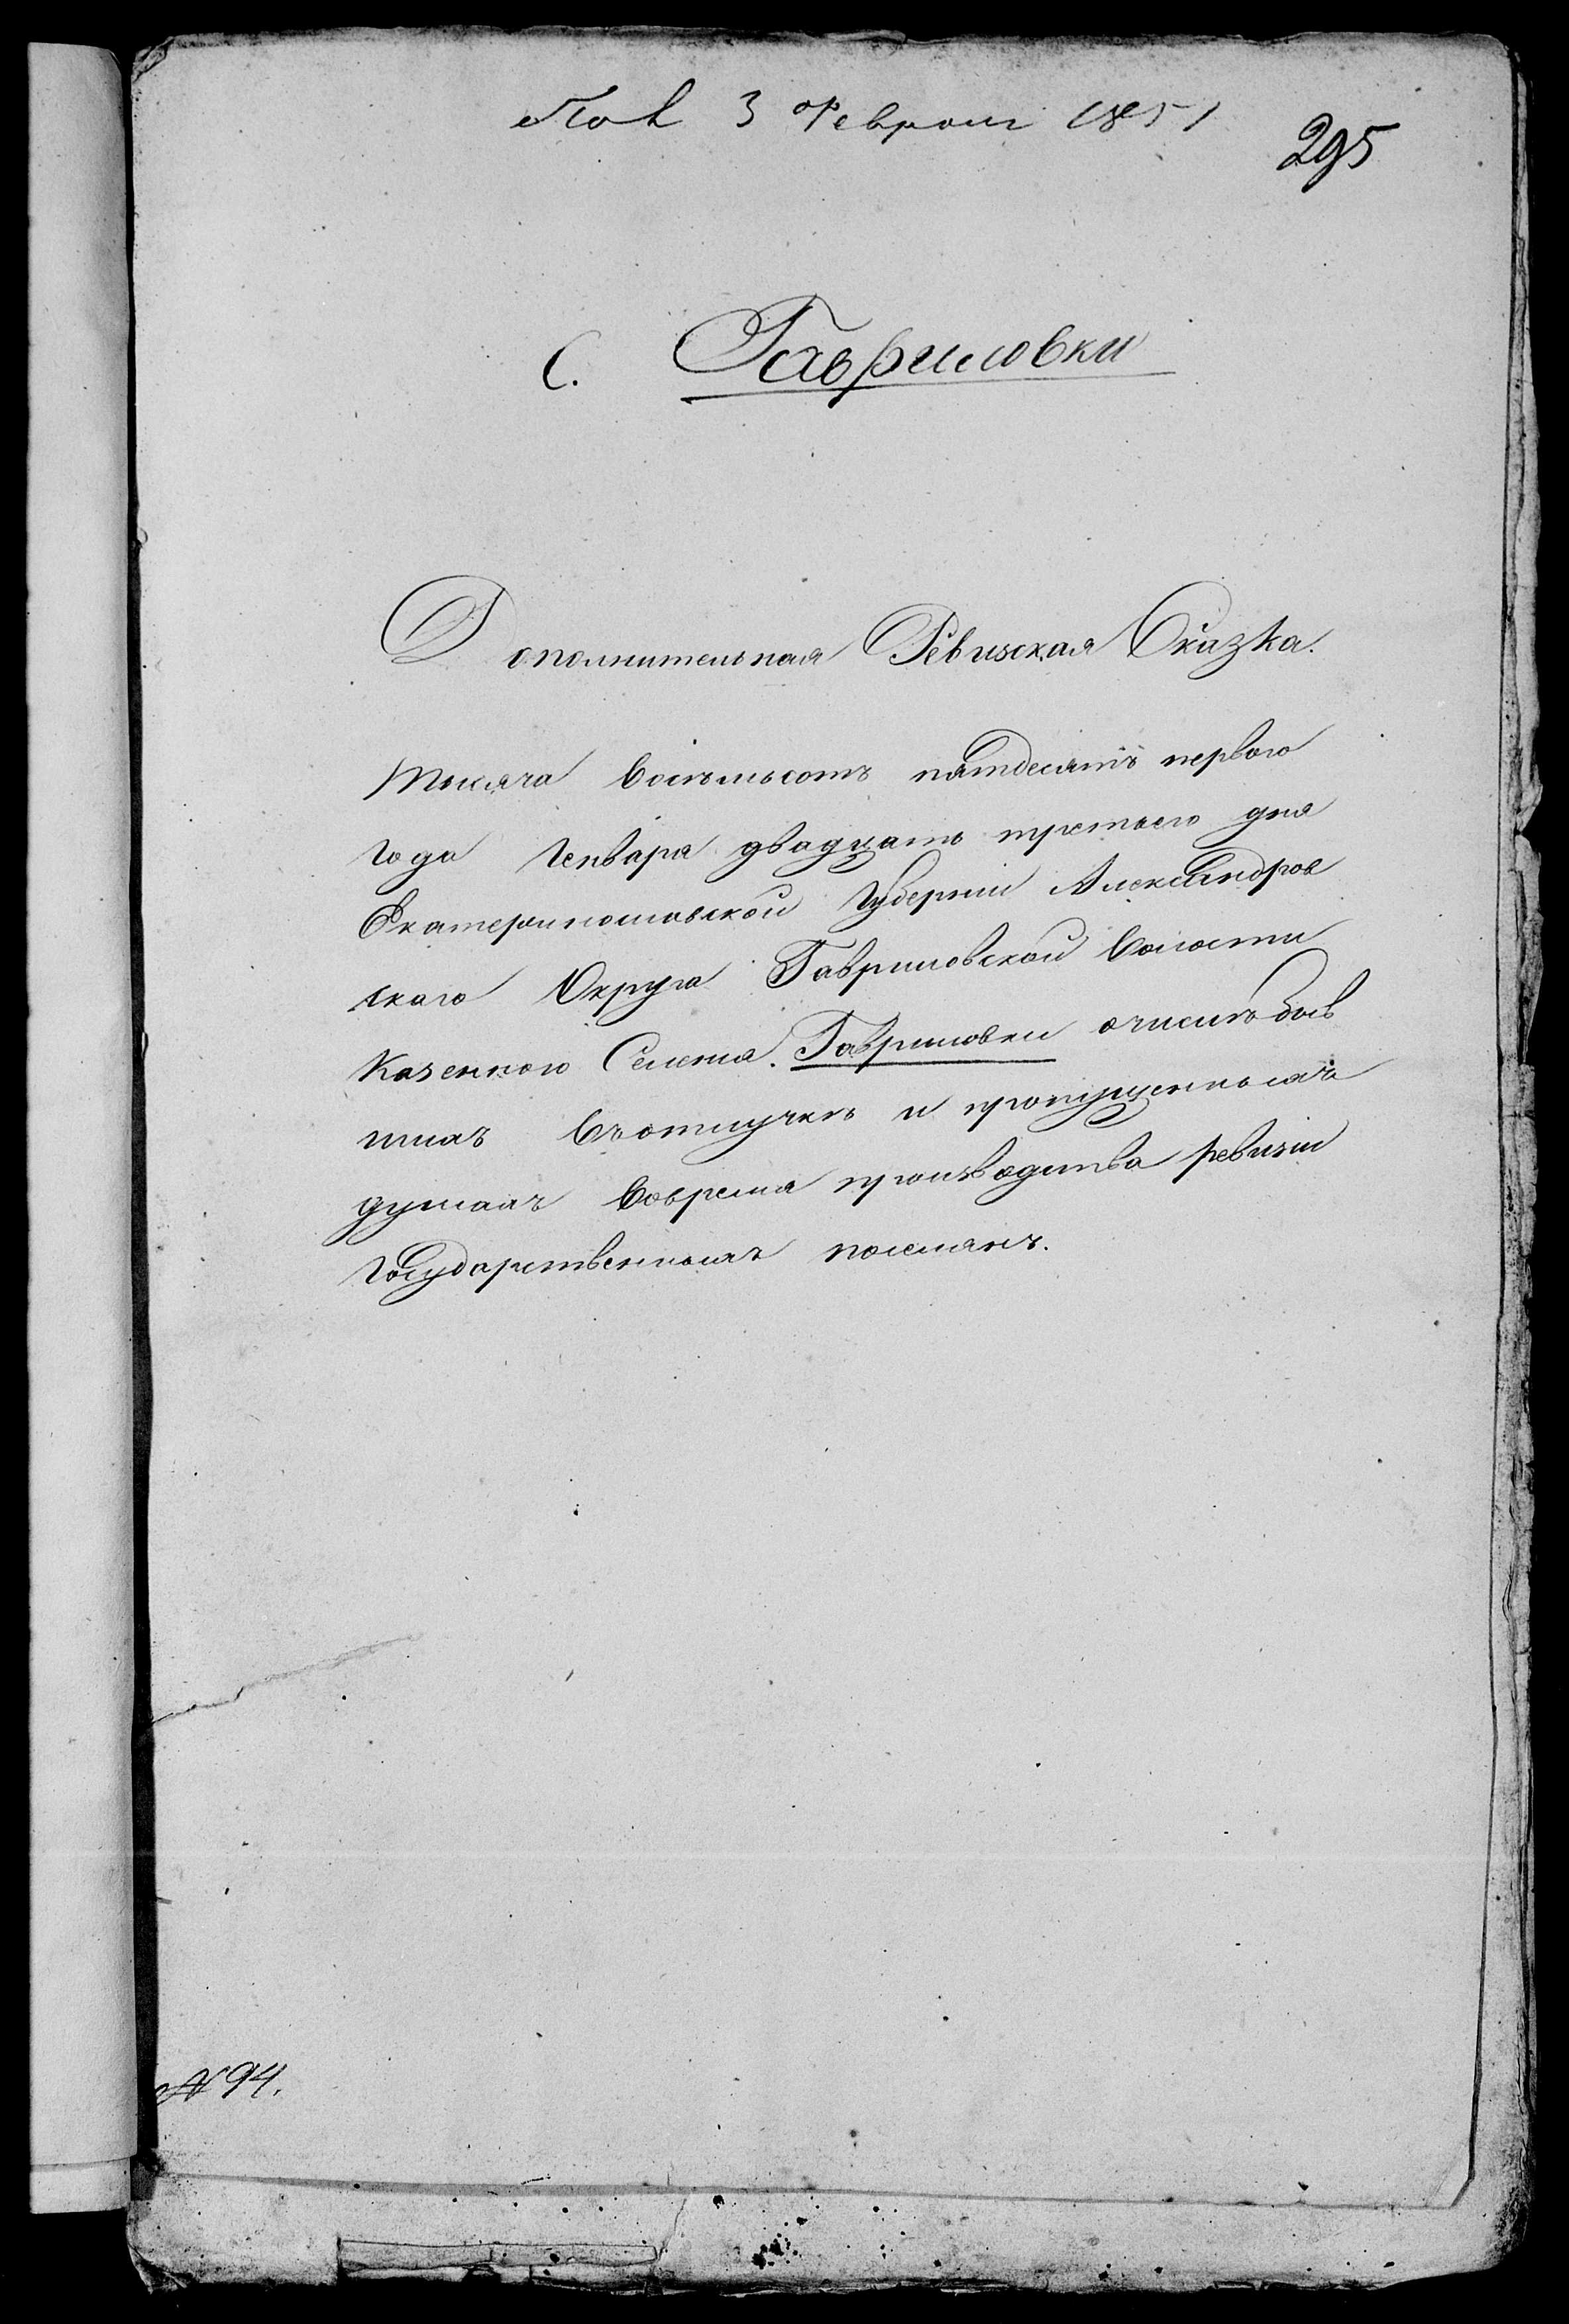 3 Февраля 1851
295
С. Гавриловки
Дополнительная Ревизская Сказка.
Тысяча восемьсотъ пятдесятъ перваго
года Генваря двадцать третьего дня
Екатеринославской Губерніи Александров
скаго Округа Гавриловской волости
Казенного Селенія. Гавриловки о числѣ быв
шихъ въотлучкѣ и пропущенныхъ
душахъ вовремя производства ревизіи
Государственныхъ поселянъ.
№ 94.